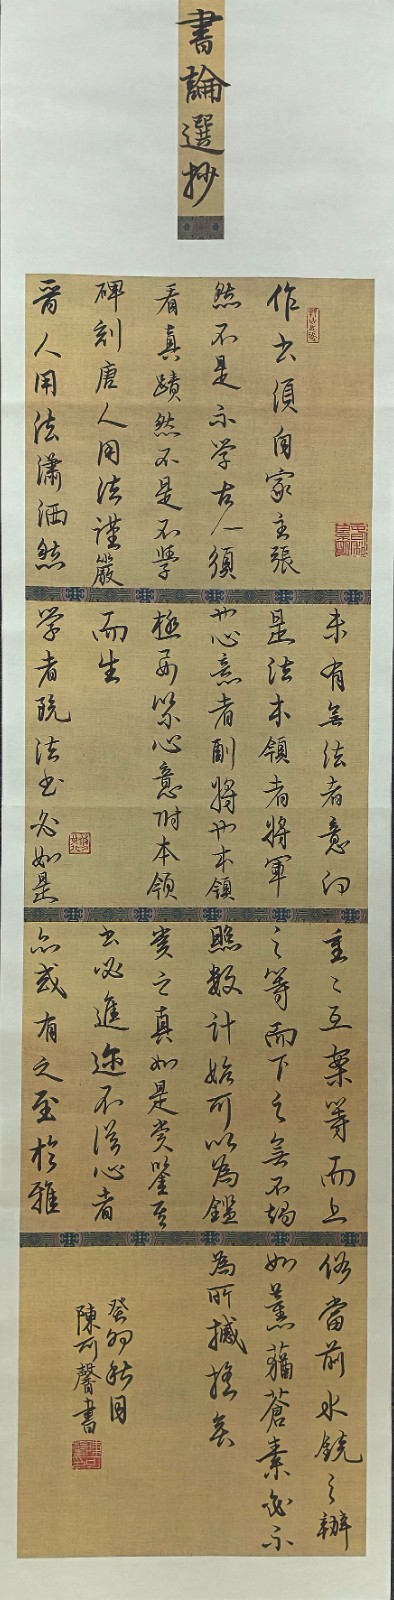 書論選抄
作书須自家主張
然不是不学古人須
看真蹟然不是不學
碑刻唐人用法謹嚴
晋人用法瀟洒然
未有無法者意即
是法本領者將軍
也心意者副將也本領
極要緊心意附本領
而生
学者既法书必如是
重重互案等而上
之等而下之無不燭
照數計始可以為鑑
賞之真如是賞鑒其
书必進迹不從心者
亦或有之至於雅
俗當前水鏡之辨
如薰蕕蒼素必不
為所撼摇矣
癸卯秋月
陳可馨書